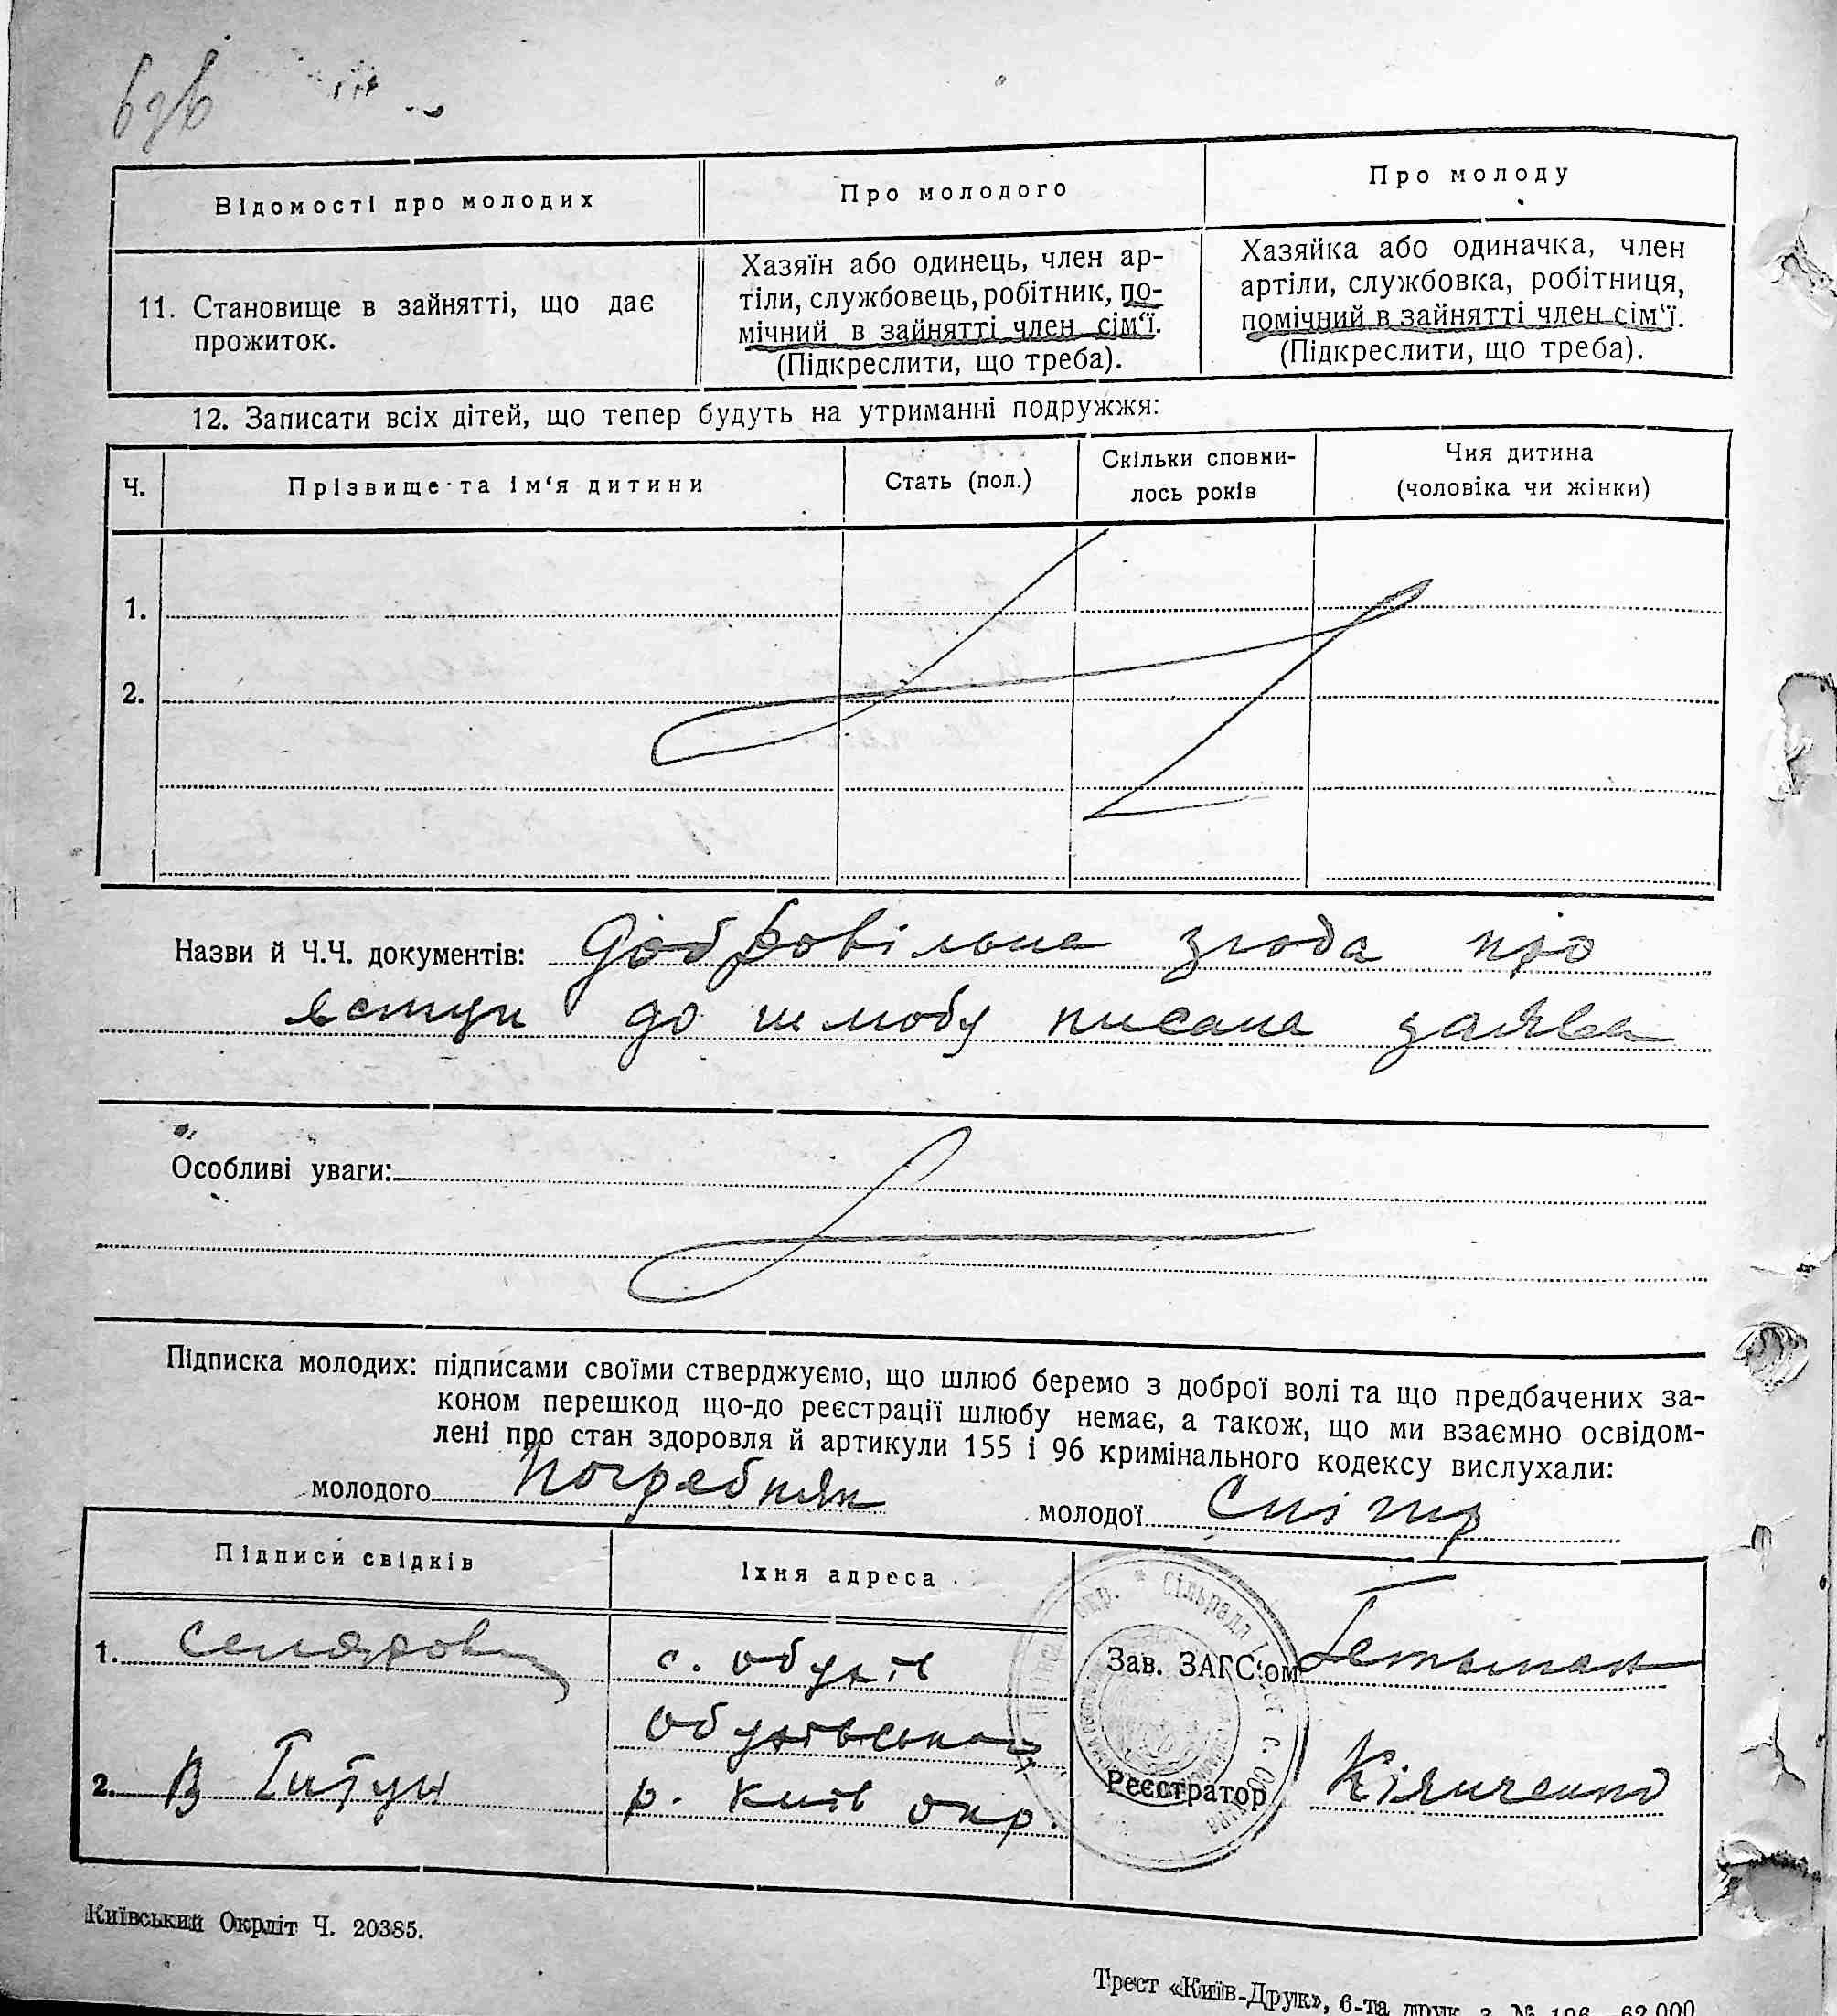 Відомості про молодих
Про молодого
Про молоду
11. Становище в зайнятті, що дає
прожиток.
Хазяїн або одинець, член ар-
тіли, службовець, робітник, по-
мічний в зайнятті член сім‘ї.
(Підкреслити, що треба).
Хазяйка або одиначка, член
артіли, службовка, робітниця,
помічний в зайнятті член сім‘ї.
(Підкреслити, що треба).
12. Записати всіх дітей, що тепер будуть на утриманні подружжя:
Ч.
Прізвище та ім‘я дитини
Стать (пол.)
Скільки сповни-
лось років
Чия дитина
(чоловіка чи жінки)
1.
2.
Назви й Ч.Ч. документів: Добровільна згода про
вступ до шлюбу писана заява
Особливі уваги:
Підписка молодих: підписами своїми стверджуємо, що шлюб беремо з доброї волі та що предбачених за-
коном перешкод що-до реєстрації шлюбу немає, а також, що ми взаємно освідом-
лені про стан здоровля й артикули 155 і 96 кримінального кодексу вислухали:
молодого Погребняк
молодої Снігир
Підписи свідків
Їхня адреса
1.
с. Обухів
Обухівського
2. В
р. Київ окр.
Зав. ЗАГС‘ом Гетьман
Реєстратор Кияниченко
Київський Окрліт Ч. 20385.
Трест «Київ-Друк», 6-та друк. з. № 106—62.000